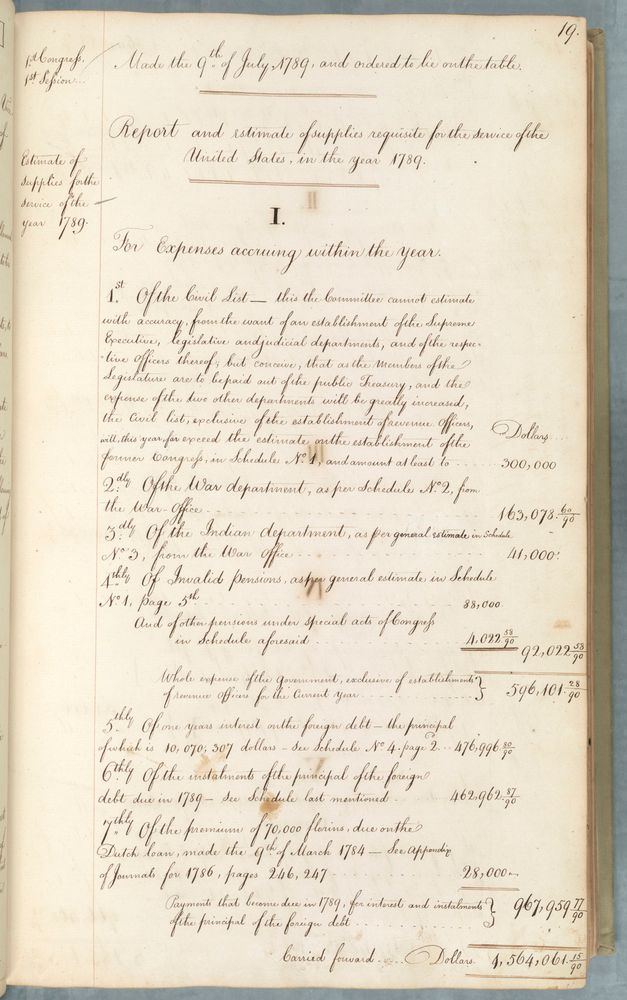 19.
1st Congress,
1st Session...
Made the 9th of July, 1789, and ordered to lie on the table.
Report and estimate of supplies requisite for the service of the
United States, in the year 1789.
Estimate of
supplies for the
service of the
year 1789.
I.
For Expenses accruing within the year.
1st Of the Civil List — this the Committee cannot estimate
with accuracy, from the want of an establishment of the Supreme
Executive, legislative and judicial departments, and of the respec=
=tive Officers thereof; but conceive, that as the Members of the
Legislature are to be paid out of the public Treasury, and the
expense of the two other departments will be greatly increased,
the Civil list, exclusive of the establishment of revenue Officers,
will, this year, far exceed the estimate on the establishment of the
former Congress, in Schedule No. 1, and amount at least to
Dollars...
300,000
2.dly Of the War department, as per Schedule No. 2, from
the War-Office
163,078.60/90
3.dly Of the Indian department, as per general estimate in Schedule
No. 3, from the War Office
41,000.
4thly Of Invalid Pensions, as per general estimate in Schedule
No. 1, page 5th
88,000
And of other pensions under special acts of Congress
in Schedule aforesaid
4,022 58/90
92,022 58/90
Whole expense of the Government, exclusive of establishments
of revenue Officers for the Current year
596,101.28/90
5thly Of one years interest on the foreign debt — the principal
of which is 10,070,307 dollars - See Schedule No. 4. page 2... 476,996 80/90
6thly Of the instalments of the principal of the foreign
debt due in 1789 — See Schedule last mentioned
462,962.87/90
7thly Of the premium of 70,000 florins, due on the
Dutch loan, made the 9th of March 1784 — See Appendix
of Journals for 1786, pages 246, 247
28,000
Payments that become due in 1789, for interest and instalments
of the principal of the foreign debt
967,959 77/90
Carried forward .... Dollars. 1,564,061.15/90